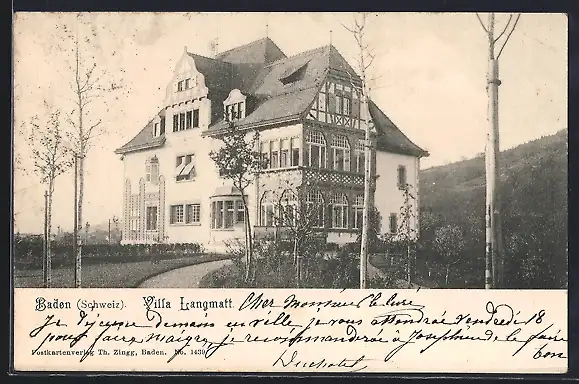 Baden (Schweiz). Villa Langmatt. Cher Monsieur le curé
Je déjeune demain en ville, je vous attendrai Vendredi 18
pour faire maigre, je recommanderai à Joséphine de le faire
Postkartenverlag Th. Zingg, Baden. No. 1439 bon
Duchatel